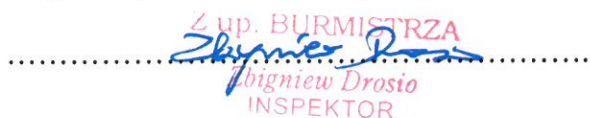 Z up. BURMISTRZA
Zbigniew Drosio
Zbigniew Drosio
INSPEKTOR